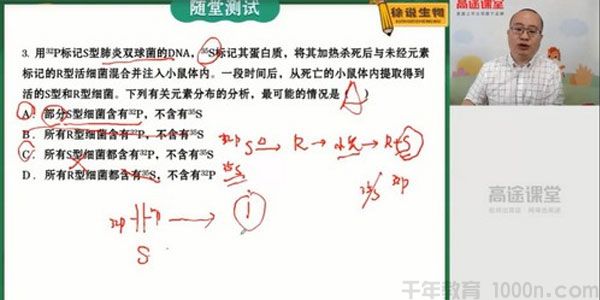 随堂测试
徐说生物
高途课堂
3. 用³²P标记S型肺炎双球菌的DNA，³⁵S标记其蛋白质，将其加热杀死后与未经元素
标记的R型活细菌混合并注入小鼠体内。一段时间后，从死亡的小鼠体内提取得到
活的S型和R型细菌。下列有关元素分布的分析，最可能的情况是（A）
A．部分S型细菌含有³²P，不含有³⁵S
B．所有R型细菌含有³²P，不含有³⁵S
C．所有S型细菌都含有³²P，不含有³⁵S
D．所有R型细菌都含有³⁵S，不含有³²P
32P S → R → 小鼠 → R+S
35S
35S 32P
32P
S
高途课堂
千年教育 1000n.com